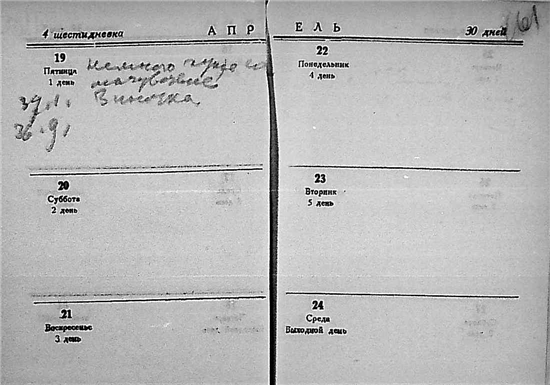 4 шестидневка АПРЕЛЬ 30 дней 161
19
Пятница
1 день
немного
Виночка
37.1.
36.9,
20
Суббота
2 день
21
Воскресенье
3 день
22
Понедельник
4 день
23
Вторник
5 день
24
Среда
Выходной день